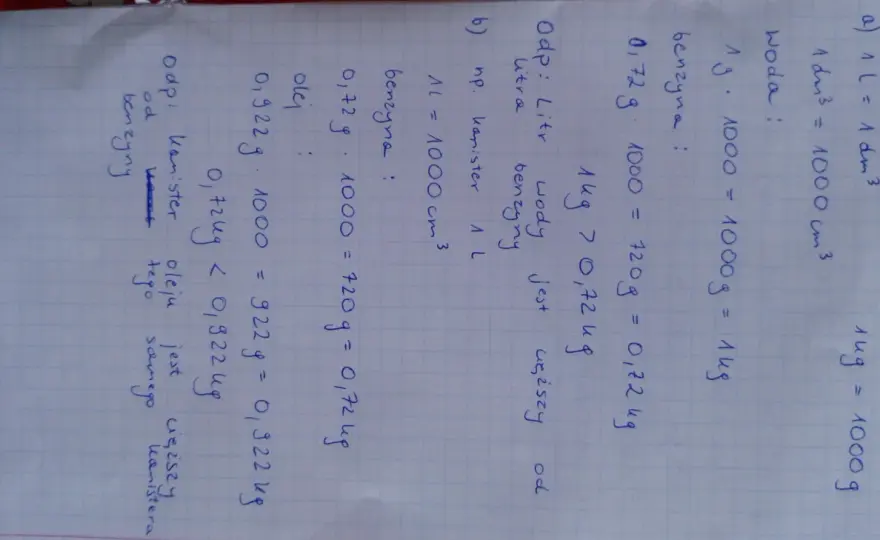 a) 1 l = 1 dm³ 1kg = 1000g
1dm³ = 1000 cm³
woda :
1g · 1000 = 1000g = 1kg
benzyna :
0,72g · 1000 = 720g = 0,72kg
1kg > 0,72kg
Odp: Litr wody jest cięższy od
litra benzyny
b) np. kanister 1 L
1l = 1000cm³
benzyna :
0,72g · 1000 = 720g = 0,72kg
olej :
0,922g · 1000 = 922g = 0,922kg
0,72kg < 0,922kg
Odp: kanister oleju jest cięższy
od tego samego kanistera
benzyny